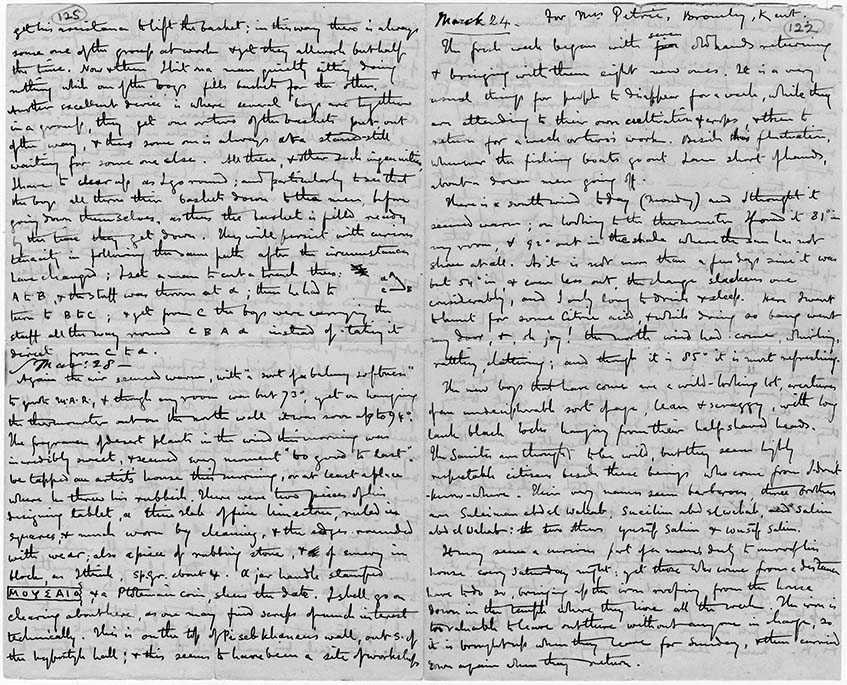 125
get his assistance to lift the basket; in this way there is always
some one of the group at work & yet they all work but half
the time. Now & then I hit on a man quietly sitting doing
nothing while one of the boys fills baskets for the others.
Another excellent device is where several boys are together
in a group, they get one or two of the baskets put out
of the way, & thus some one is always at a stand still
waiting for some one else. All these, & other such ingenuities,
I have to clear up as I go round; and particularly to see that
the boys all throw their baskets down to the men, before
going down themselves, as then the basket is filled ready
by the time they get down. They will persist with curious
tenacity in following the same path after the circumstances
have changed; I set a man to cut a trench thus:
A to B, & the stuff was thrown at a; then he had to
turn to B to C; & yet from C the boys were carrying the
stuff all the way round C B A a instead of taking it
direct from C to a.
a A
C B
Mar: 28 —
Again the air seemed warm, with "a sort of a balmy softness"
to quote M.A.R., & though my room was but 73°, yet on hanging
the thermometer out on the north wall it was soon up to 94°.
The fragrance of desert plants in the wind this morning was
incredibly sweet, & seemed every moment "too good to last".
We tapped an artist's house this morning, or at least a place
where he threw his rubbish. There were two pieces of his
designing tablet, a thin slab of fine limestone, ruled in
squares, & much worn by cleaning, & the edges rounded
with wear; also a piece of rubbing stone, & of emery in
block, as I think, sp. gr. about 4. A jar handle stamped
ΜΟΥΣΑΙΟ & a Ptolemaic coin, shews the date. I shall go on
clearing about here, as one may find scraps of much interest
technically. This is on the top of Pisebkhanen's wall, out S. of
the hypostyle hall; & this seems to have been a site of workshops
March 24. For Mrs Petrie, Bromley, Kent.
122
The fresh week began with seven old hands returning
& bringing with them eight new ones. It is a very
usual thing for people to disappear for a week, while they
are attending to their own cultivation & crops, & then to
return for a week or two's work. Beside this fluctuation,
whenever the fishing boats go out I am short of hands,
about a dozen men going off.
There is a south wind to day (Monday) and I thought it
seemed warm; on looking to the thermometer I found it 81° in
my room, & 92° out in the shade where the sun has not
shone at all. As it is not more than a few days since it was
but 54° in & even less out, the change slackens one
considerably, and I only long to drink & sleep. Here I went
to hunt for some Citric acid & while doing so bang went
my door & oh joy! the north wind had come, whirling,
rattling, clattering; and though it is 85° it is most refreshing.
The new boys that have come are a wild-looking lot, creatures
of an undecipherable sort of age, lean & scraggy, with long
lank black locks hanging from their half shaved heads.
The Sanites are thought to be wild, but they seem highly
respectable citizens beside these beings who come from I dont-
know-where. Their very names seem barbarous, three brothers
are Suleiman abd el Wahab, abd el Wahab, Salim
abd el Wahab: two others, Yussuf Salim & Salim.
It may seem a curious part of a man's duty to unroof his
house every Saturday night; yet those who come from a distance
have to do so, bringing up the iron roofing from the house
down in the temple where they live all the week. The iron is
too valuable to leave out there without anyone in charge, so
it is brought up when they leave for Sunday, & then carried
down again when they return.